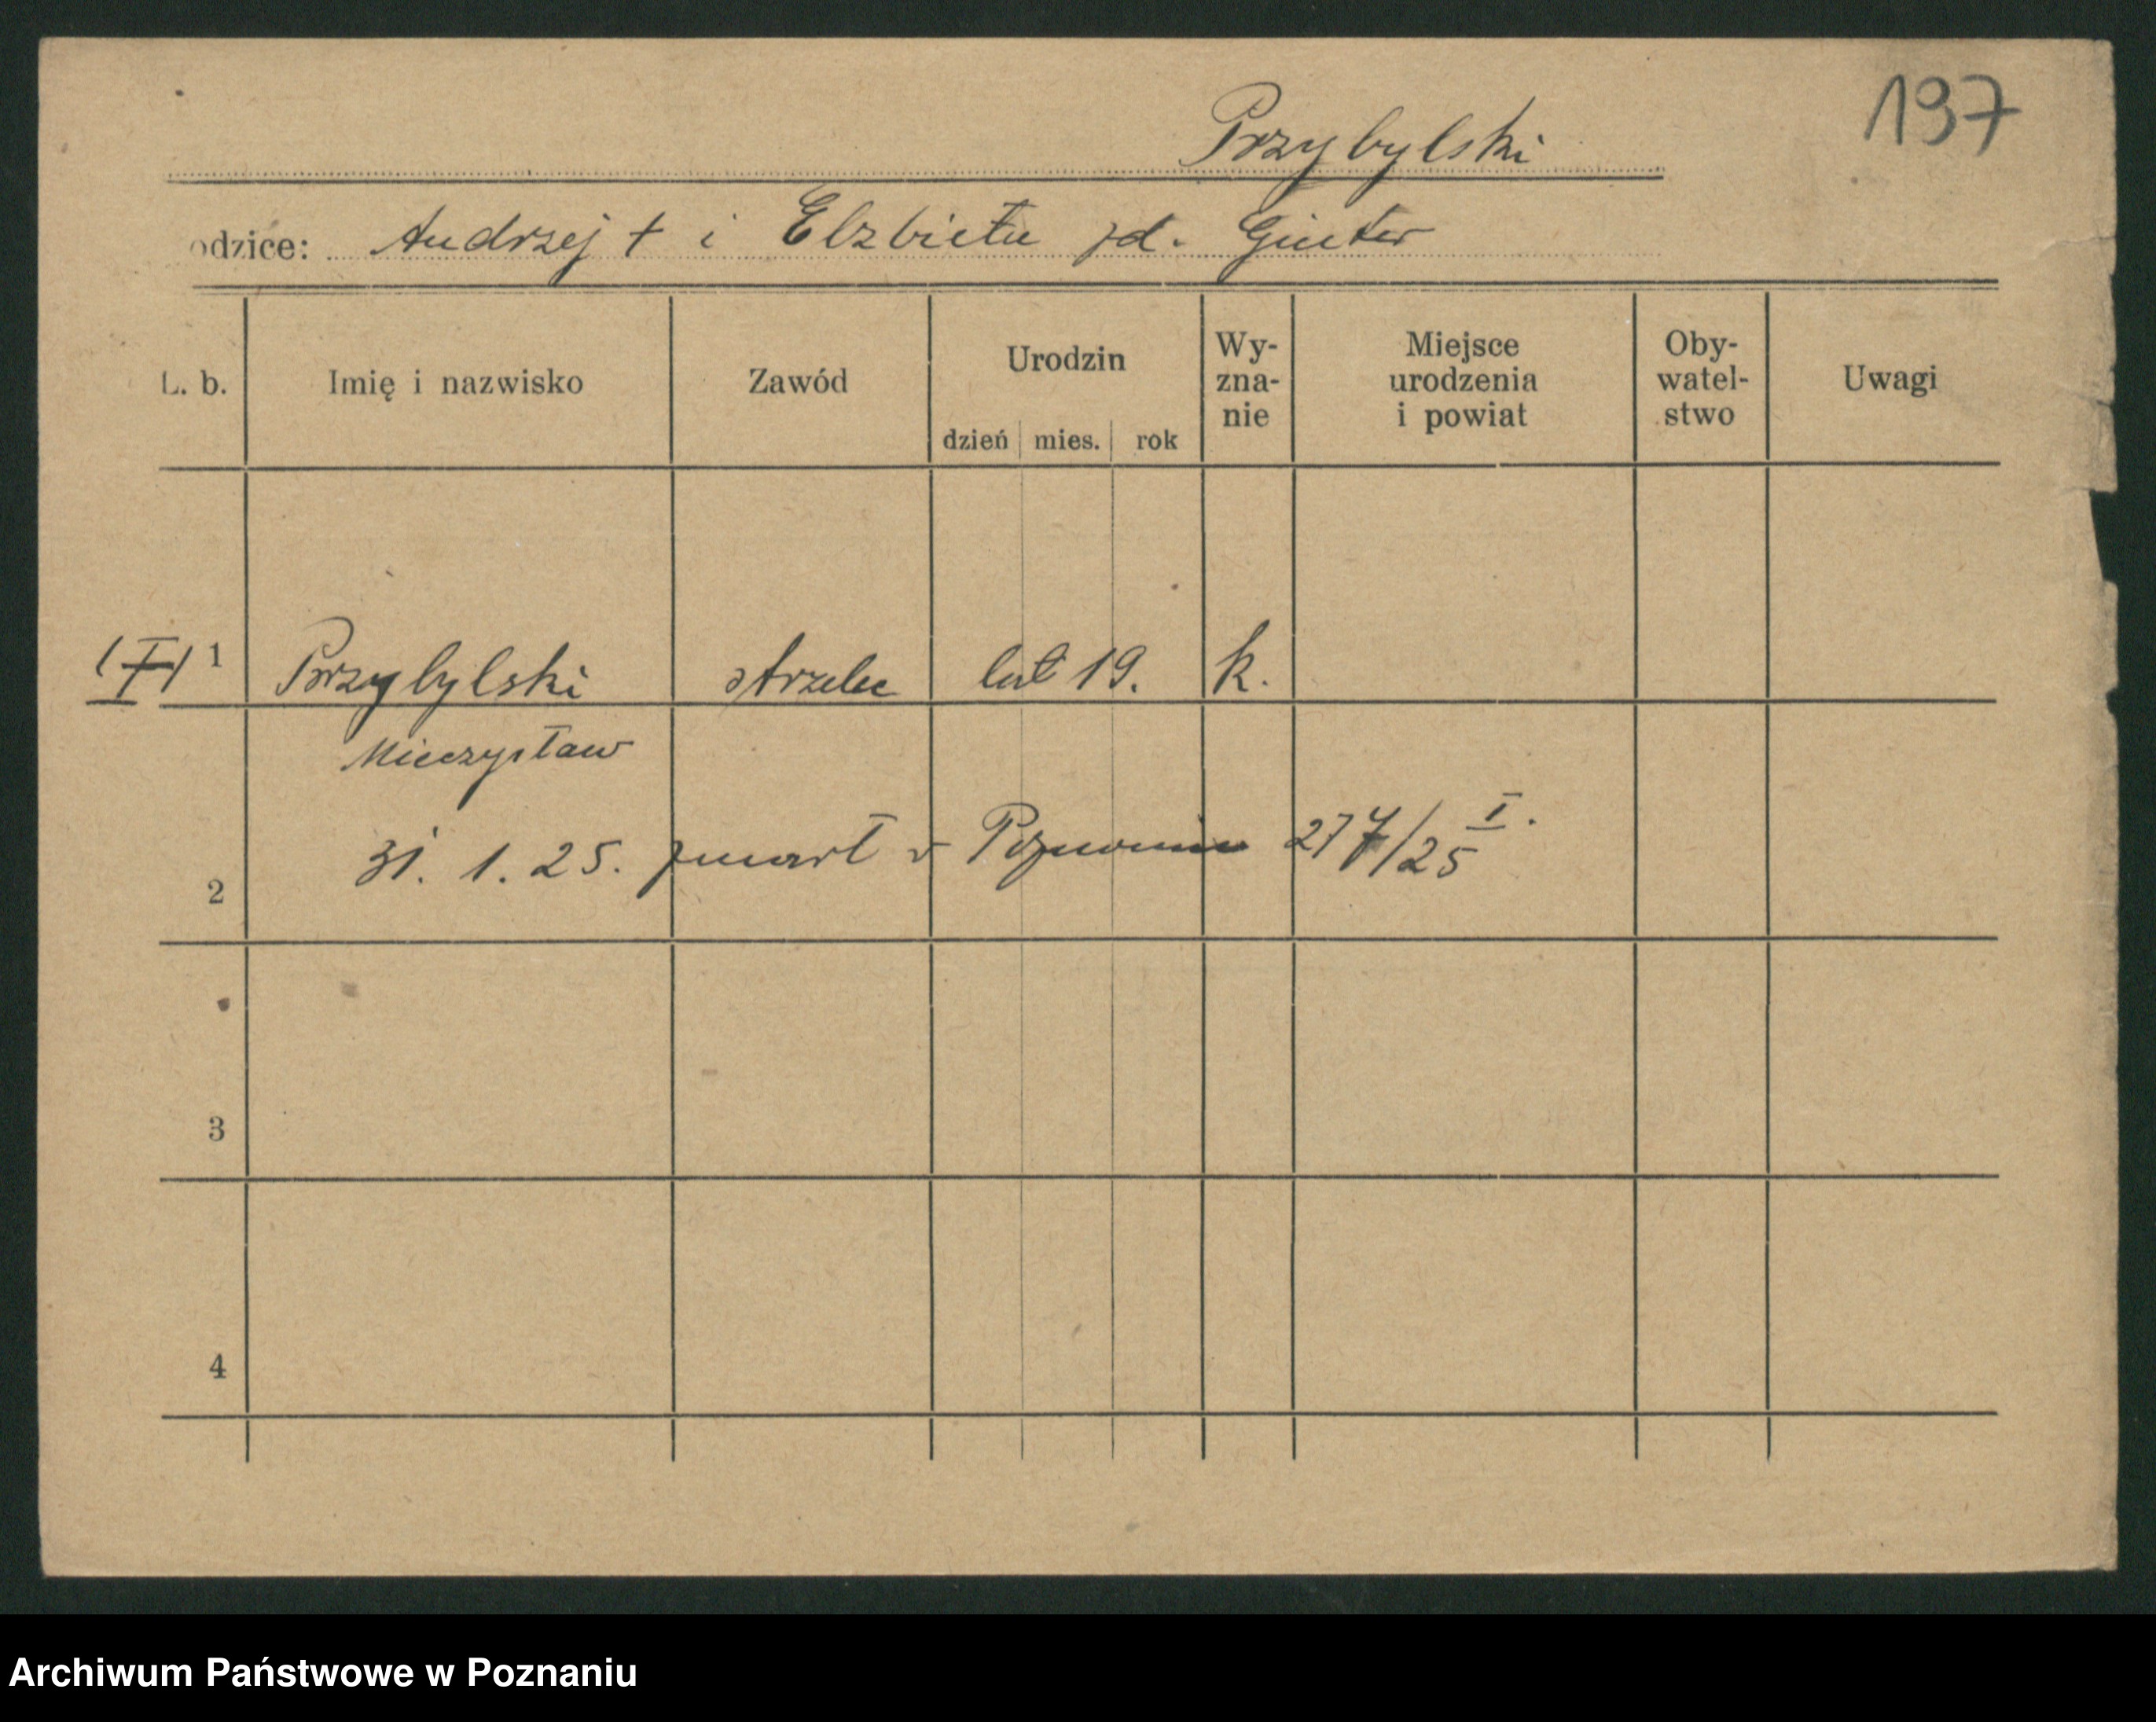 197
Przybylski
odzice: Andrzej + i Elzbieta zd. Ginter
L. b. Imię i nazwisko Zawód Urodzin dzień mies. rok Wy-zna-nie Miejsce urodzenia i powiat Oby-watel-stwo Uwagi
1 Przybylski strzelec lat 19. k.
Mieczysław
2 31. 1. 25. zmarł w Poznaniu 277/25 I.
3
4
Archiwum Państwowe w Poznaniu